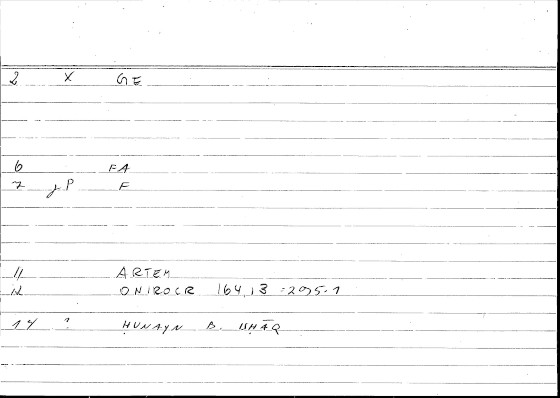 2 X GE
6 FA
7 γP F
11 ARTEM
12 ONIROCR 164,13 =295.1
14 ? ḤUNAYN B. ISḤĀQ